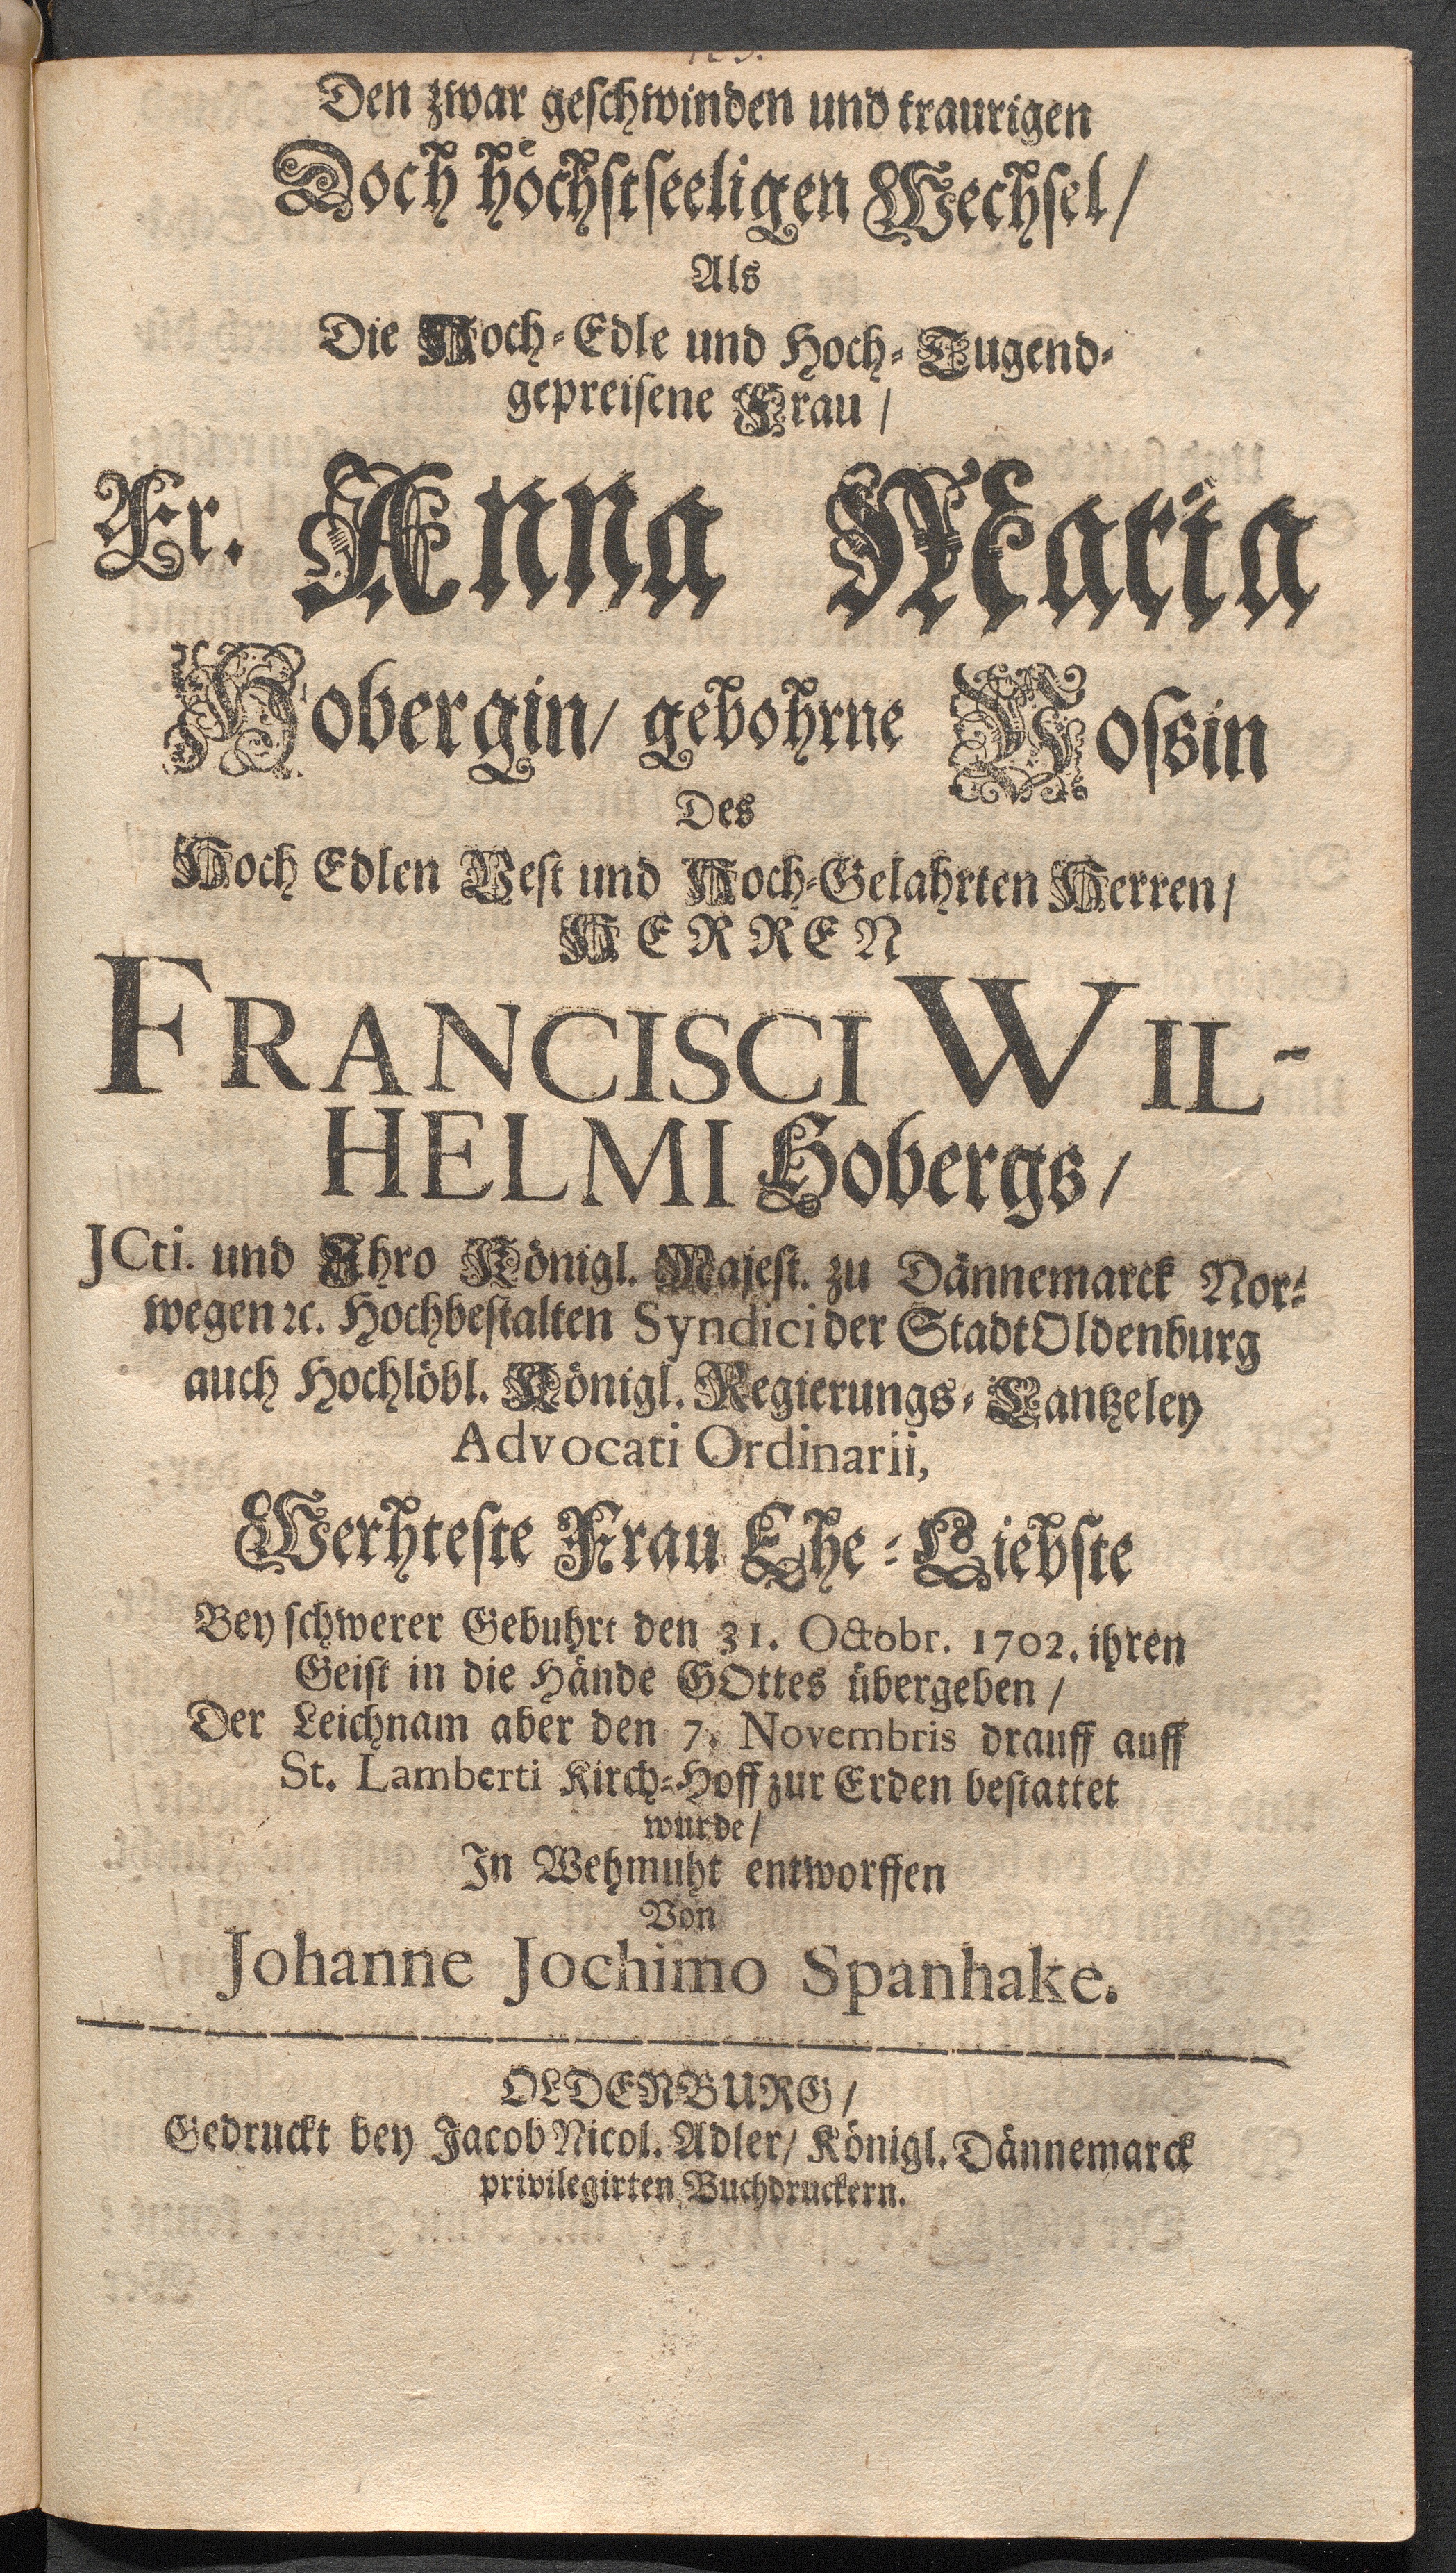 Den zwar geschwinden und traurigen
Doch höchstseeligen Wechsel/
Als
Die Hoch-Edle und Hoch-Tugend-
gepreisene Frau/
Fr. Anna Maria
Hobergin/ gebohrne Vossin
Des
Hoch Edlen Vest und Hoch-Gelahrten Herren/
HERREN
FRANCISCI WIL-
HELMI Hobergs/
JCti. und Ihro Königl. Majest. zu Dännemarck Nor-
wegen ꝛc. Hochbestalten Syndici der Stadt Oldenburg
auch Hochlöbl. Königl. Regierungs-Cantzeley
Advocati Ordinarii,
Werhteste Frau Ehe-Liebste
Bey schwerer Gebuhrt den 31. Octobr. 1702. ihren
Geist in die Hände GOttes übergeben/
Der Leichnam aber den 7. Novembris drauff auff
St. Lamberti Kirch-Hoff zur Erden bestattet
wurde/
In Wehmuht entworffen
Von
Johanne Jochimo Spanhake.
OLDENBURG/
Gedruckt bey Jacob Nicol. Adler/ Königl. Dännemarck
privilegirten Buchdruckern.